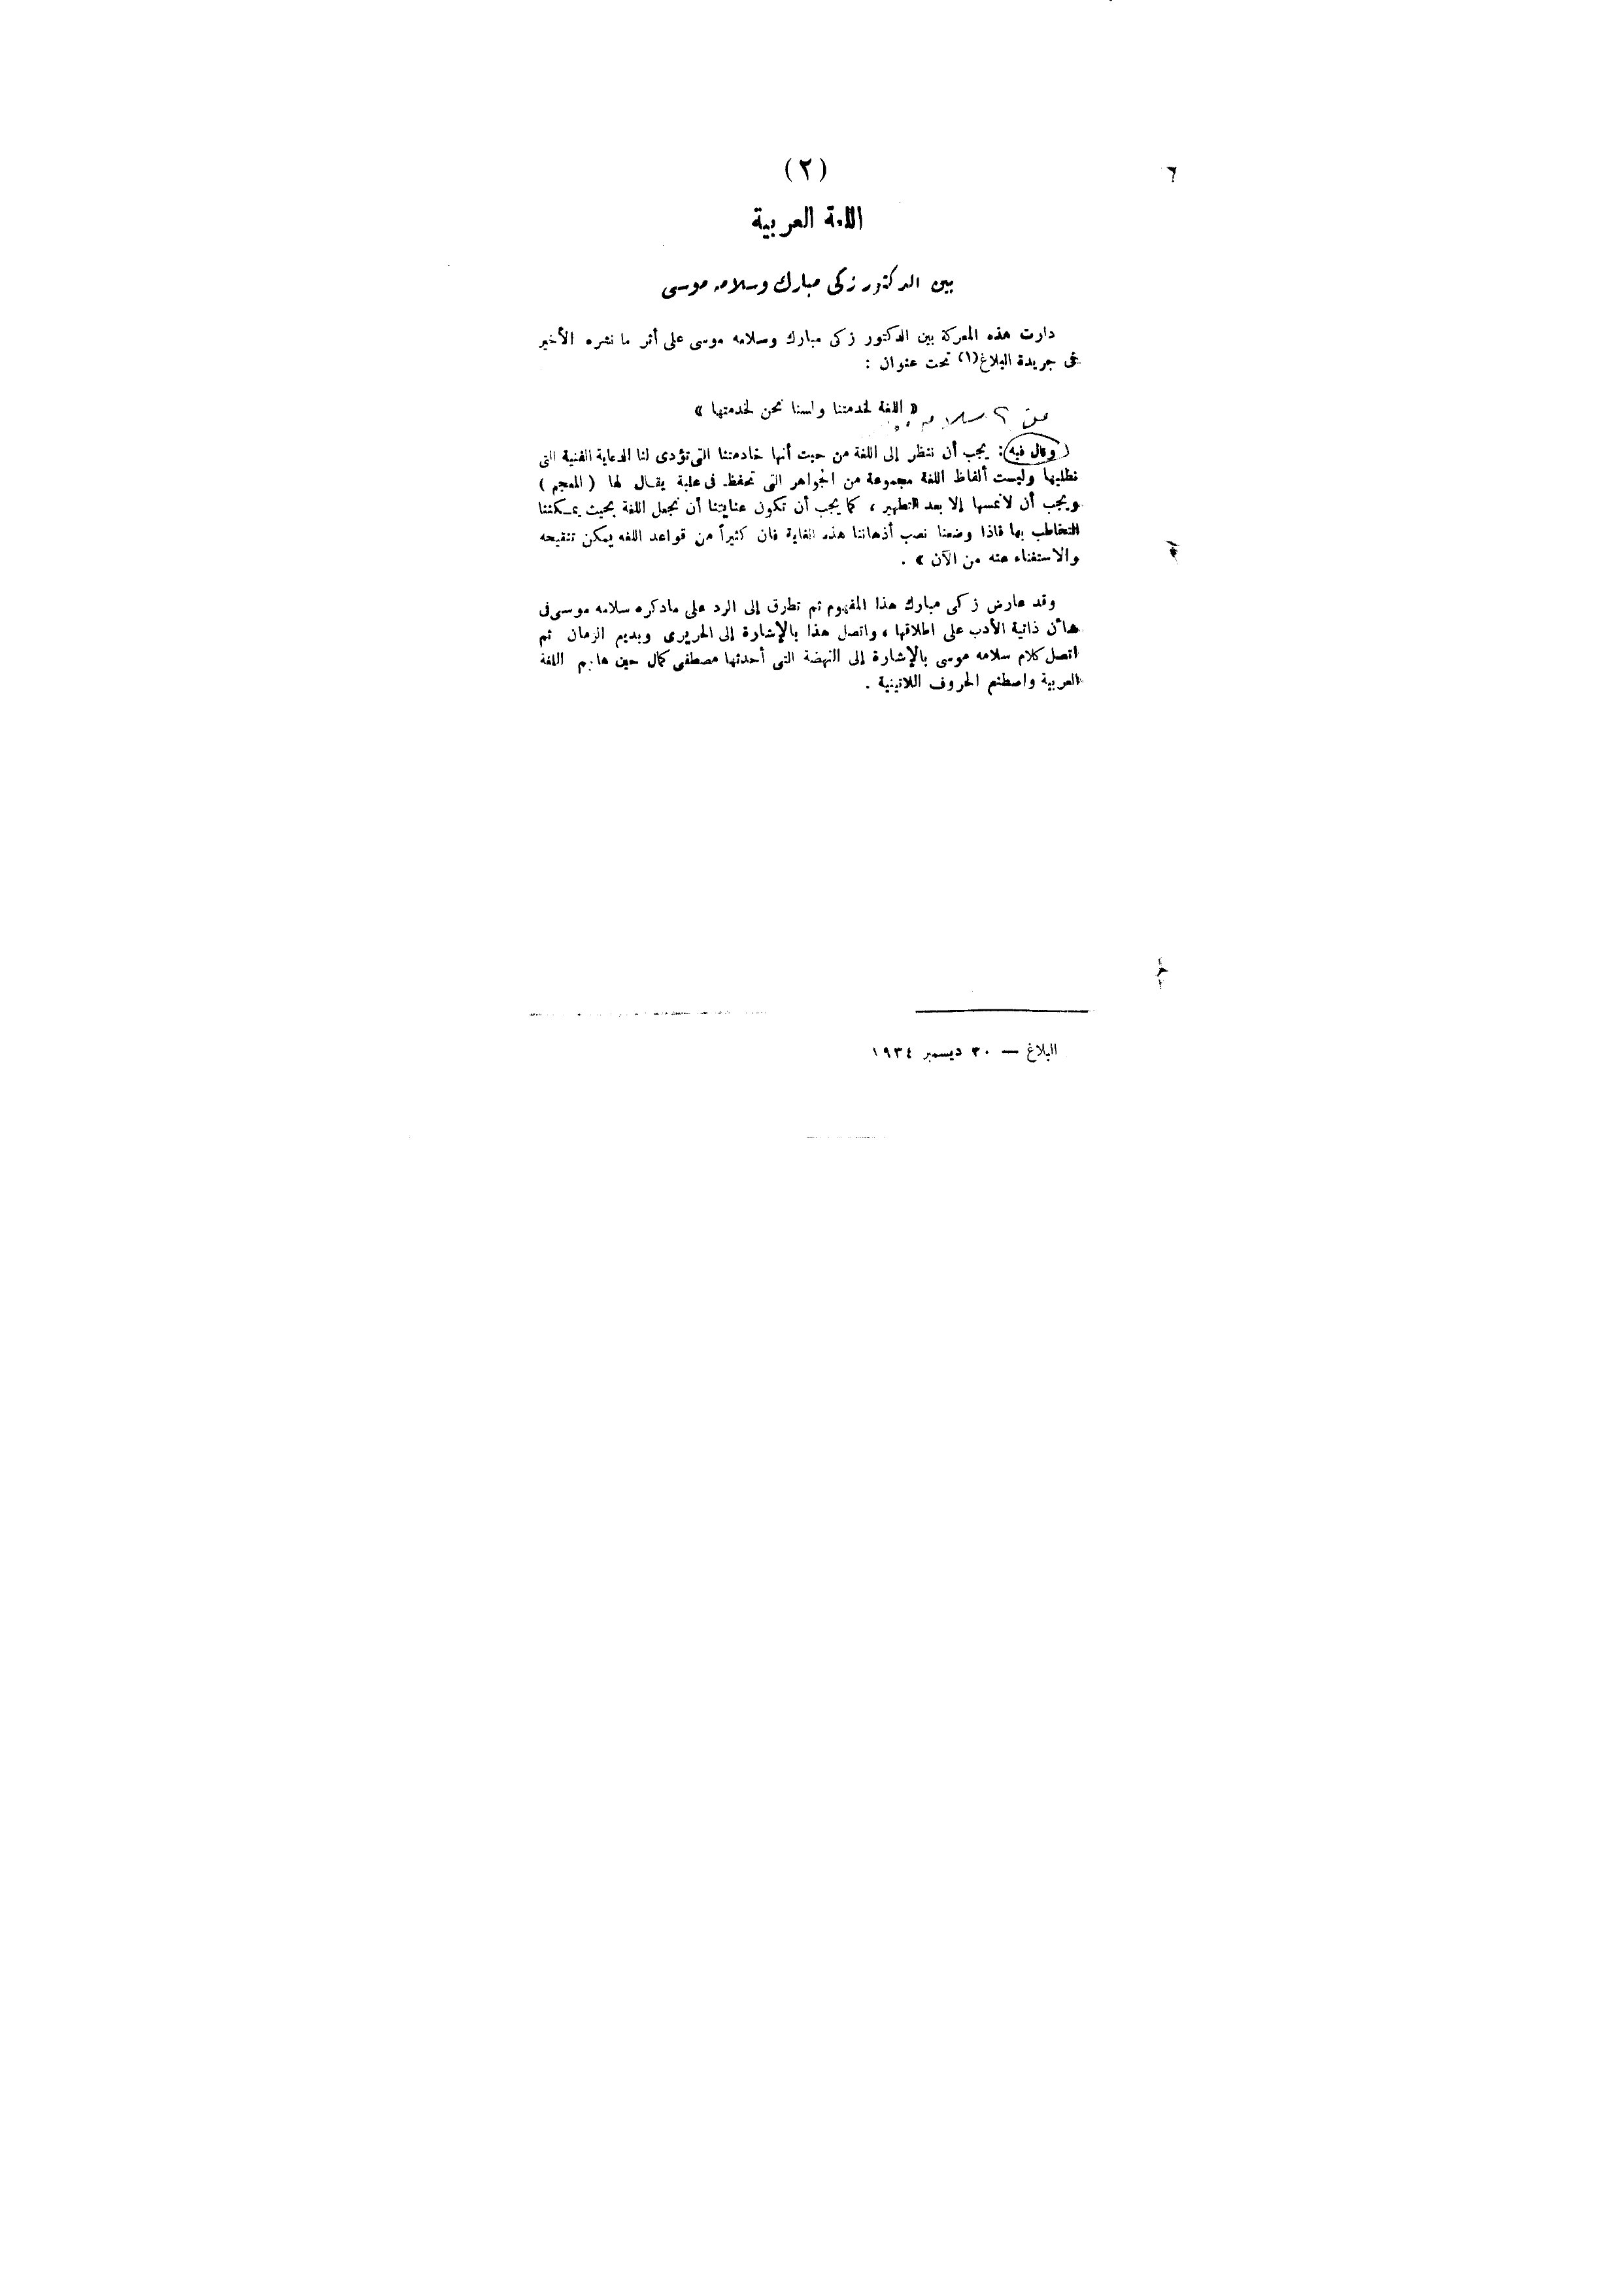 (٢)
اللغة العربية
بين الدكتور زكى مبارك وسلامه موسى
دارت هذه المعركة بين الدكتور زكى مبارك وسلامه موسى على أثر ما نشره الأخير
فى جريدة البلاغ(١) تحت عنوان :
« اللغة لخدمتنا ولسنا نحن لخدمتها »
سلامه
( وقال فيه : يجب أن ننظر إلى اللغة من حيث أنها خادمتنا التى تؤدى لنا الدعاية الفنية التى
نطلبها وليست ألفاظ اللغة مجموعة من الجواهر التى تحفظ فى علبة يقال لها ( المعجم )
ويجب أن لانمسها إلا بعد التطهير ، كما يجب أن تكون عنايتنا أن نجعل اللغة بحيث يمكننا
التخاطب بها فاذا وضعنا نصب أذهاننا هذه الغاية فان كثيراً من قواعد اللغه يمكن تنقيحه
والاستغناء عنه من الآن » .
وقد عارض زكى مبارك هذا المفهوم ثم تطرق إلى الرد على ماذكره سلامه موسى فى
شأن ذاتية الأدب على اطلاقها ، واتصل هذا بالإشارة إلى الحريرى وبديع الزمان ثم
اتصل كلام سلامه موسى بالإشارة إلى النهضة التى أحدثها مصطفى كمال حين هاجم اللغة
العربية واصطنع الحروف اللاتينية .
البلاغ — ٣٠ ديسمبر ١٩٣٤